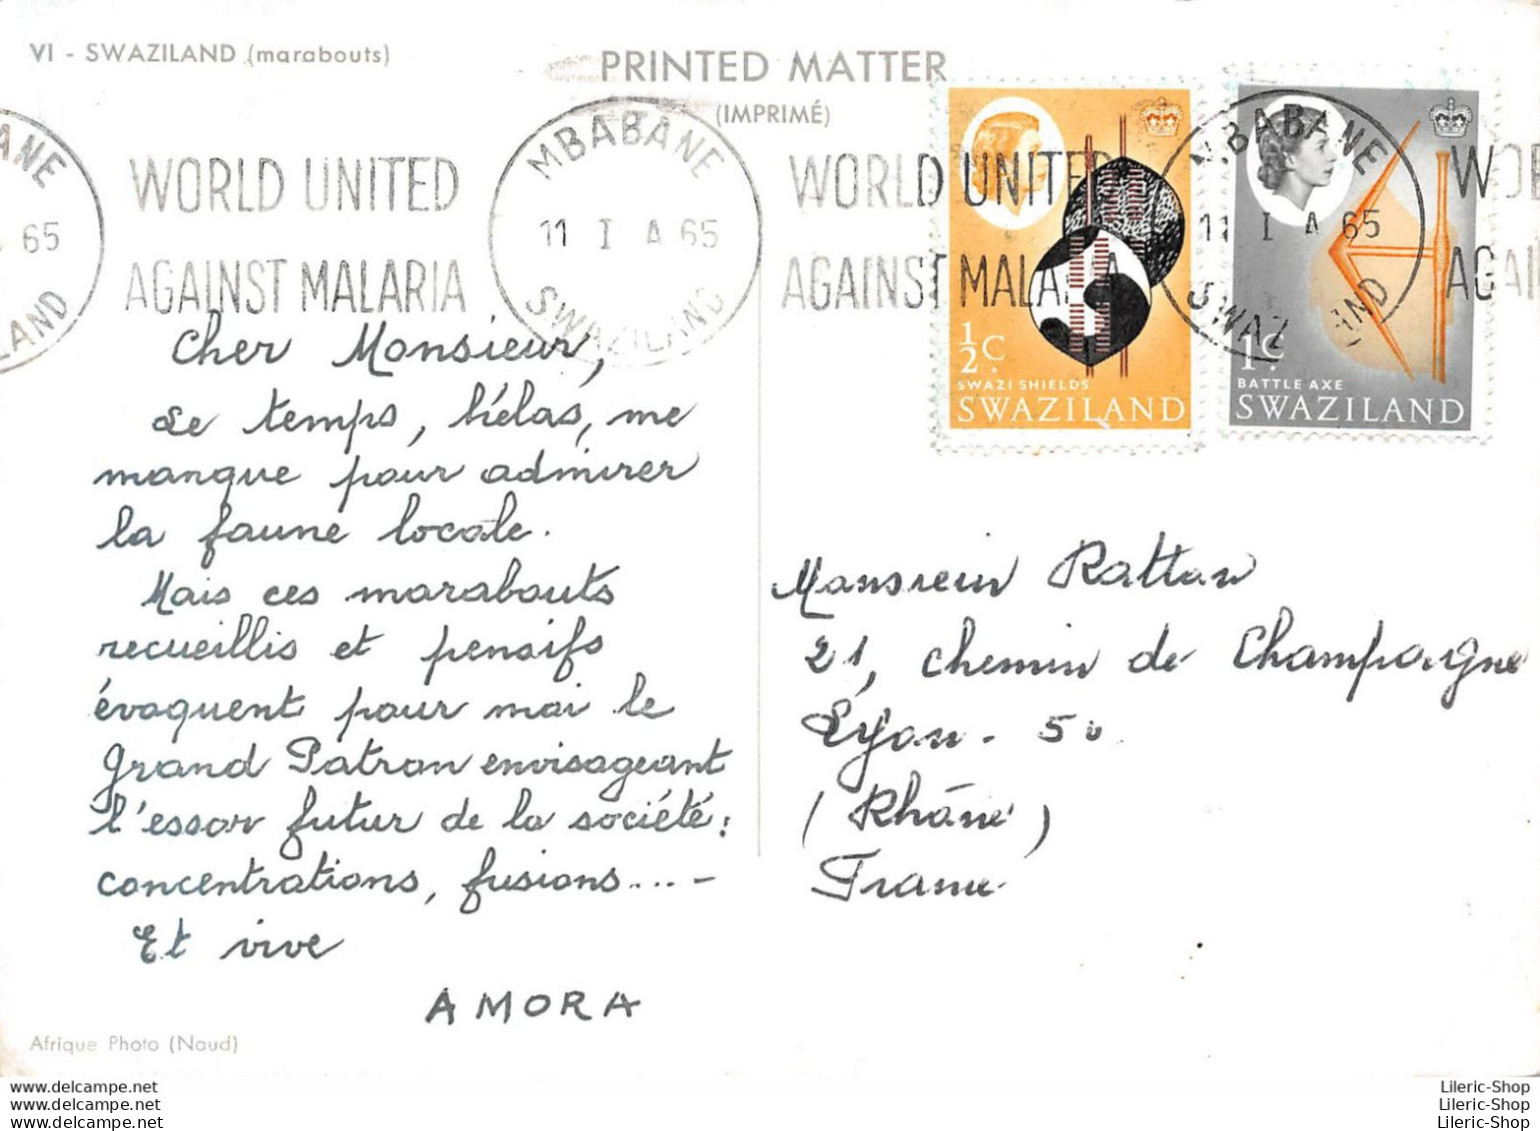 VI - SWAZILAND (marabouts)
PRINTED MATTER
(IMPRIMÉ)
BANE
65
LAND
WORLD UNITED
AGAINST MALARIA
MBABANE
11 I A 65
SWAZILAND
WORLD UNITED
AGAINST MALARIA
MBABANE
11 I A 65
SWAZILAND
WOR
AGAI
½ C.
SWAZI SHIELDS
SWAZILAND
1C.
BATTLE AXE
SWAZILAND
Cher Monsieur,
Le temps, hélas, me
manque pour admirer
la faune locale.
Mais ces marabouts
recueillis et pensifs
évoquent pour moi le
Grand Patron envisageant
l'essor futur de la société:
concentrations, fusions....-
Et vive
AMORA
Monsieur Rattan
21, chemin de Champagne
Lyon - 5e
(Rhône)
France
Afrique Photo (Naud)
www.delcampe.net
www.delcampe.net
www.delcampe.net
Lileric-Shop
Lileric-Shop
Lileric-Shop